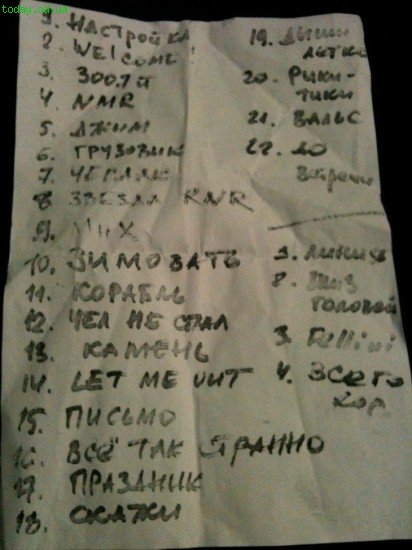 today.od.ua
1. Настройка
2. Welcome
3. 300.7 п
4. NMR
5. ДЖИМ
6. ГРУЗОВИК
7. ЧЕЛЛАК
8. ЗВЕЗДА RNR
9. МИХ
10. ЗИМОВАТЬ
11. КОРАБЛЬ
12. ЧЕЛ НЕ СПАЛ
13. КАМЕНЬ
14. LET ME OUT
15. ПИСЬМО
16. ВСЁ ТАК СТРАННО
17. ПРАЗДНИК
18. СКАЖИ
19. ДЫШИ
ЛЕГКО
20. РИКИ-
ТИКИ
21. ВАЛЬС
22. ДО
Встречи
1. ЛИНИЯ
2. ВНИЗ
ГОЛОВОЙ
3. Fellini
4. ВСЕГО